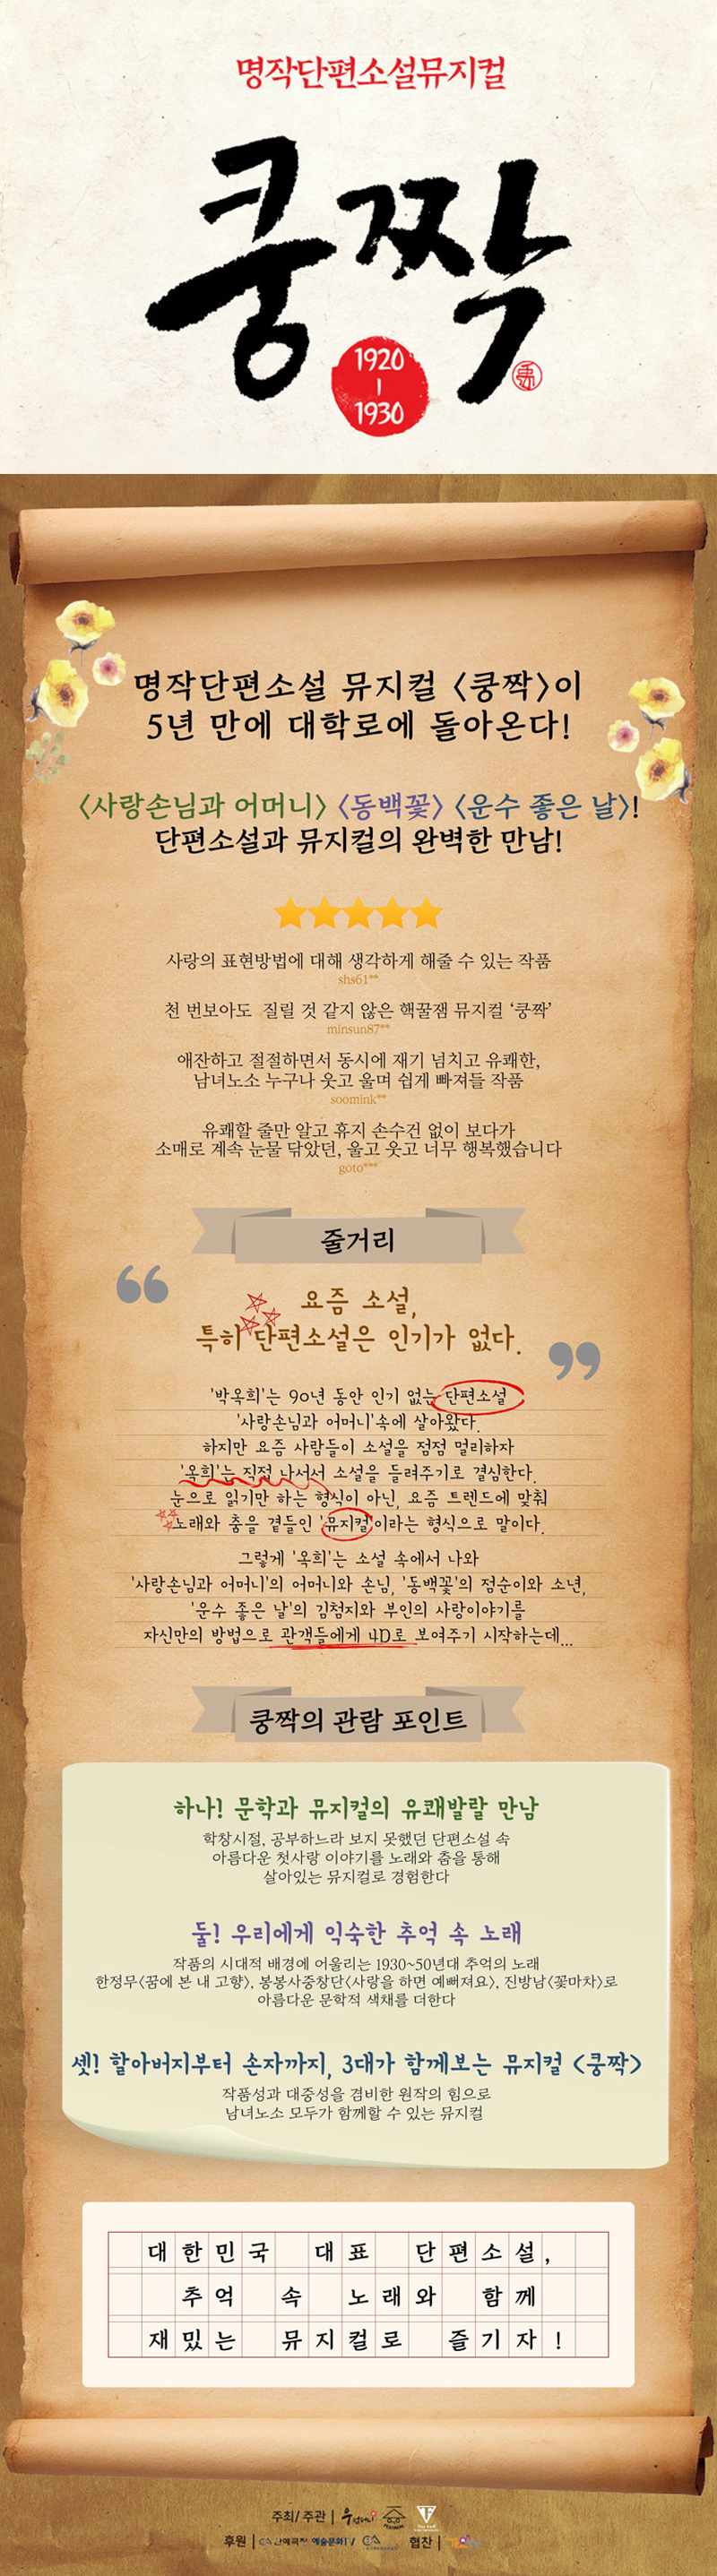 명작단편소설뮤지컬
쿵짝
1920
|
1930
명작단편소설 뮤지컬 〈쿵짝〉이
5년 만에 대학로에 돌아온다!
〈사랑손님과 어머니〉 〈동백꽃〉 〈운수 좋은 날〉!
단편소설과 뮤지컬의 완벽한 만남!
사랑의 표현방법에 대해 생각하게 해줄 수 있는 작품
shs61**
천 번보아도 질릴 것 같지 않은 핵꿀잼 뮤지컬 ‘쿵짝’
minsun87**
애잔하고 절절하면서 동시에 재기 넘치고 유쾌한,
남녀노소 누구나 웃고 울며 쉽게 빠져들 작품
soomink**
유쾌할 줄만 알고 휴지 손수건 없이 보다가
소매로 계속 눈물 닦았던, 울고 웃고 너무 행복했습니다
goto***
줄거리
“
요즘 소설,
특히 단편소설은 인기가 없다.
”
'박옥희'는 90년 동안 인기 없는 단편소설
'사랑손님과 어머니'속에 살아왔다.
하지만 요즘 사람들이 소설을 점점 멀리하자
'옥희'는 직접 나서서 소설을 들려주기로 결심한다.
눈으로 읽기만 하는 형식이 아닌, 요즘 트렌드에 맞춰
노래와 춤을 곁들인 '뮤지컬'이라는 형식으로 말이다.
그렇게 '옥희'는 소설 속에서 나와
'사랑손님과 어머니'의 어머니와 손님, '동백꽃'의 점순이와 소년,
'운수 좋은 날'의 김첨지와 부인의 사랑이야기를
자신만의 방법으로 관객들에게 4D로 보여주기 시작하는데...
쿵짝의 관람 포인트
하나! 문학과 뮤지컬의 유쾌발랄 만남
학창시절, 공부하느라 보지 못했던 단편소설 속
아름다운 첫사랑 이야기를 노래와 춤을 통해
살아있는 뮤지컬로 경험한다
둘! 우리에게 익숙한 추억 속 노래
작품의 시대적 배경에 어울리는 1930~50년대 추억의 노래
한정무〈꿈에 본 내 고향〉, 봉봉사중창단〈사랑을 하면 예뻐져요〉, 진방남〈꽃마차〉로
아름다운 문학적 색채를 더한다
셋! 할아버지부터 손자까지, 3대가 함께보는 뮤지컬 〈쿵짝〉
작품성과 대중성을 겸비한 원작의 힘으로
남녀노소 모두가 함께할 수 있는 뮤지컬
대한민국 대표 단편소설,
추억 속 노래와 함께
재밌는 뮤지컬로 즐기자!
주최/주관 |
후원 | 예술문화TV 협찬 |